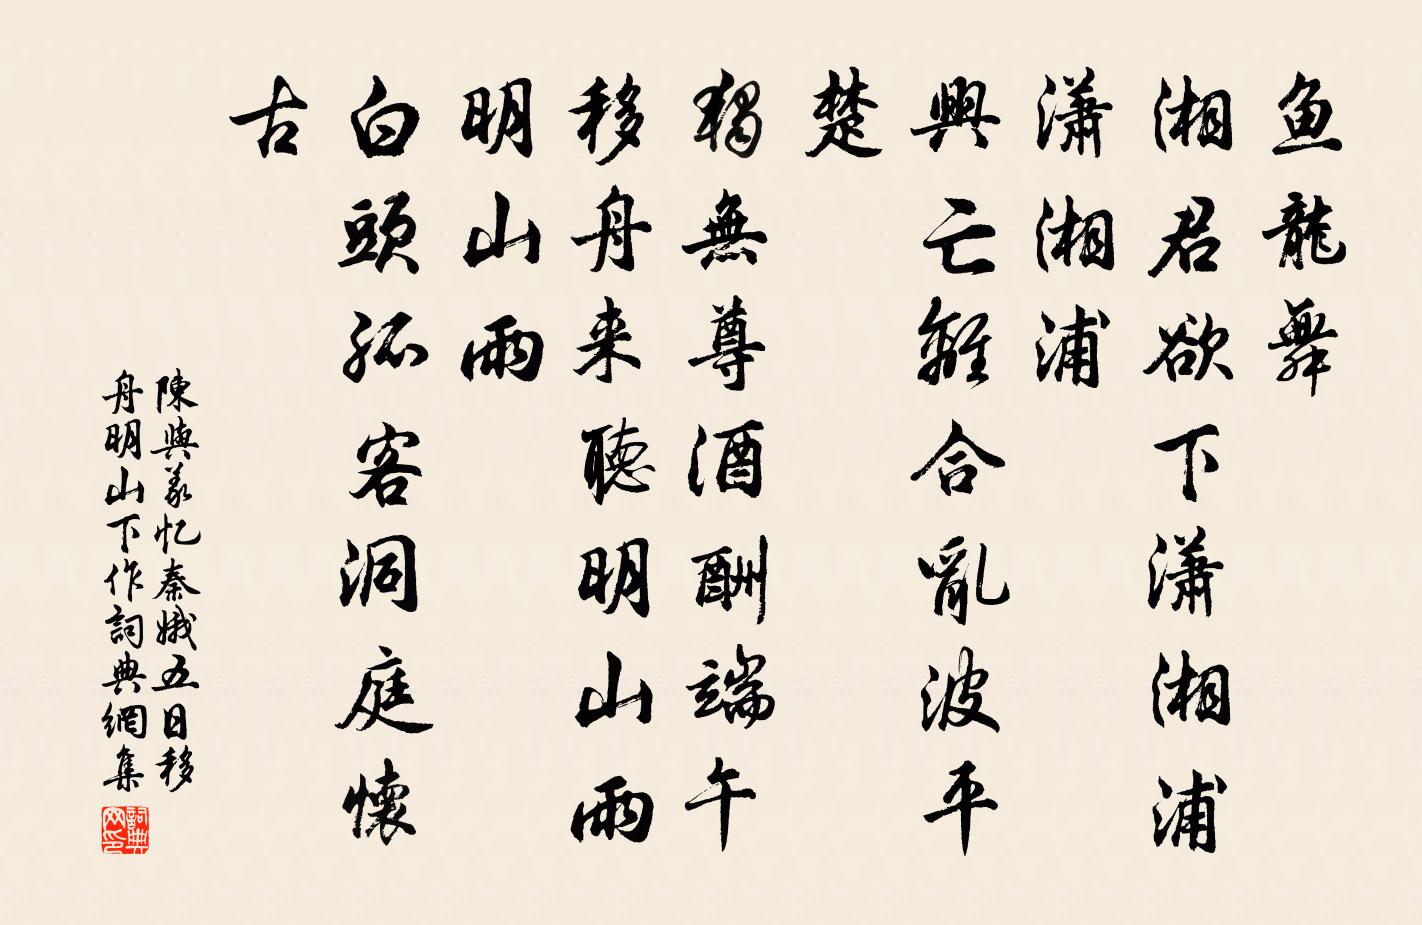 鱼龍舞
湘君欲下瀟湘浦
瀟湘浦
興亡離合亂波平
楚
獨無尊酒酬端午
移舟来聽明山雨
明山雨
白頭孤客洞庭懷
古
陳與義忆秦娥五日移
舟明山下作詞典網集
詞典网印